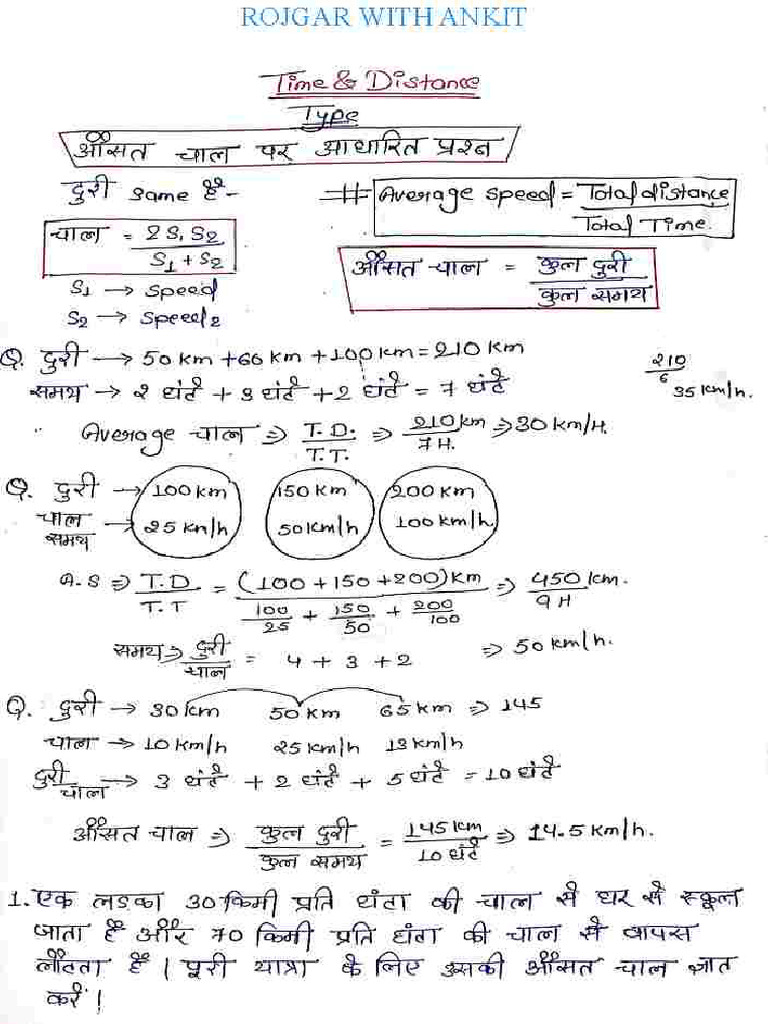 ROJGAR WITH ANKIT
Time & Distance
Type
औसत चाल पर आधारित प्रश्न
दुरी same है-
चाल = 2S₁S₂ / S₁ + S₂
S₁ → speed
S₂ → speed₂
Average speed = Total distance / Total Time.
औसत चाल = कुल दुरी / कुल समय
Q. दुरी → 50 km + 60 km + 100 km = 210 km
समय → 2 घंटे + 3 घंटे + 2 घंटे = 7 घंटे
210 / 6 35 km/h.
Average चाल ⇒ T.D. / T.T. ⇒ 210 km / 7 H. ⇒ 30 km/H.
Q. दुरी → 100 km 150 km 200 km
चाल → 25 km/h 50 km/h 100 km/h
समय
A.S ⇒ T.D. / T.T = (100 + 150 + 200) km / 100/25 + 150/50 + 200/100 ⇒ 450 km. / 9 H
समय ⇒ दुरी / चाल = 4 + 3 + 2 ⇒ 50 km/h.
Q. दुरी → 30 km 50 km 65 km ⇒ 145
चाल → 10 km/h 25 km/h 13 km/h
दुरी / चाल → 3 घंटे + 2 घंटे + 5 घंटे = 10 घंटे
औसत चाल ⇒ कुल दुरी / कुल समय = 145 km / 10 घंटे ⇒ 14.5 km/h.
1. एक लडका 30 किमी प्रति घंटा की चाल से घर से स्कूल
जाता है और 70 किमी प्रति घंटा की चाल से वापस
लौटता है । पूरी यात्रा के लिए उसकी औसत चाल ज्ञात
करें ।